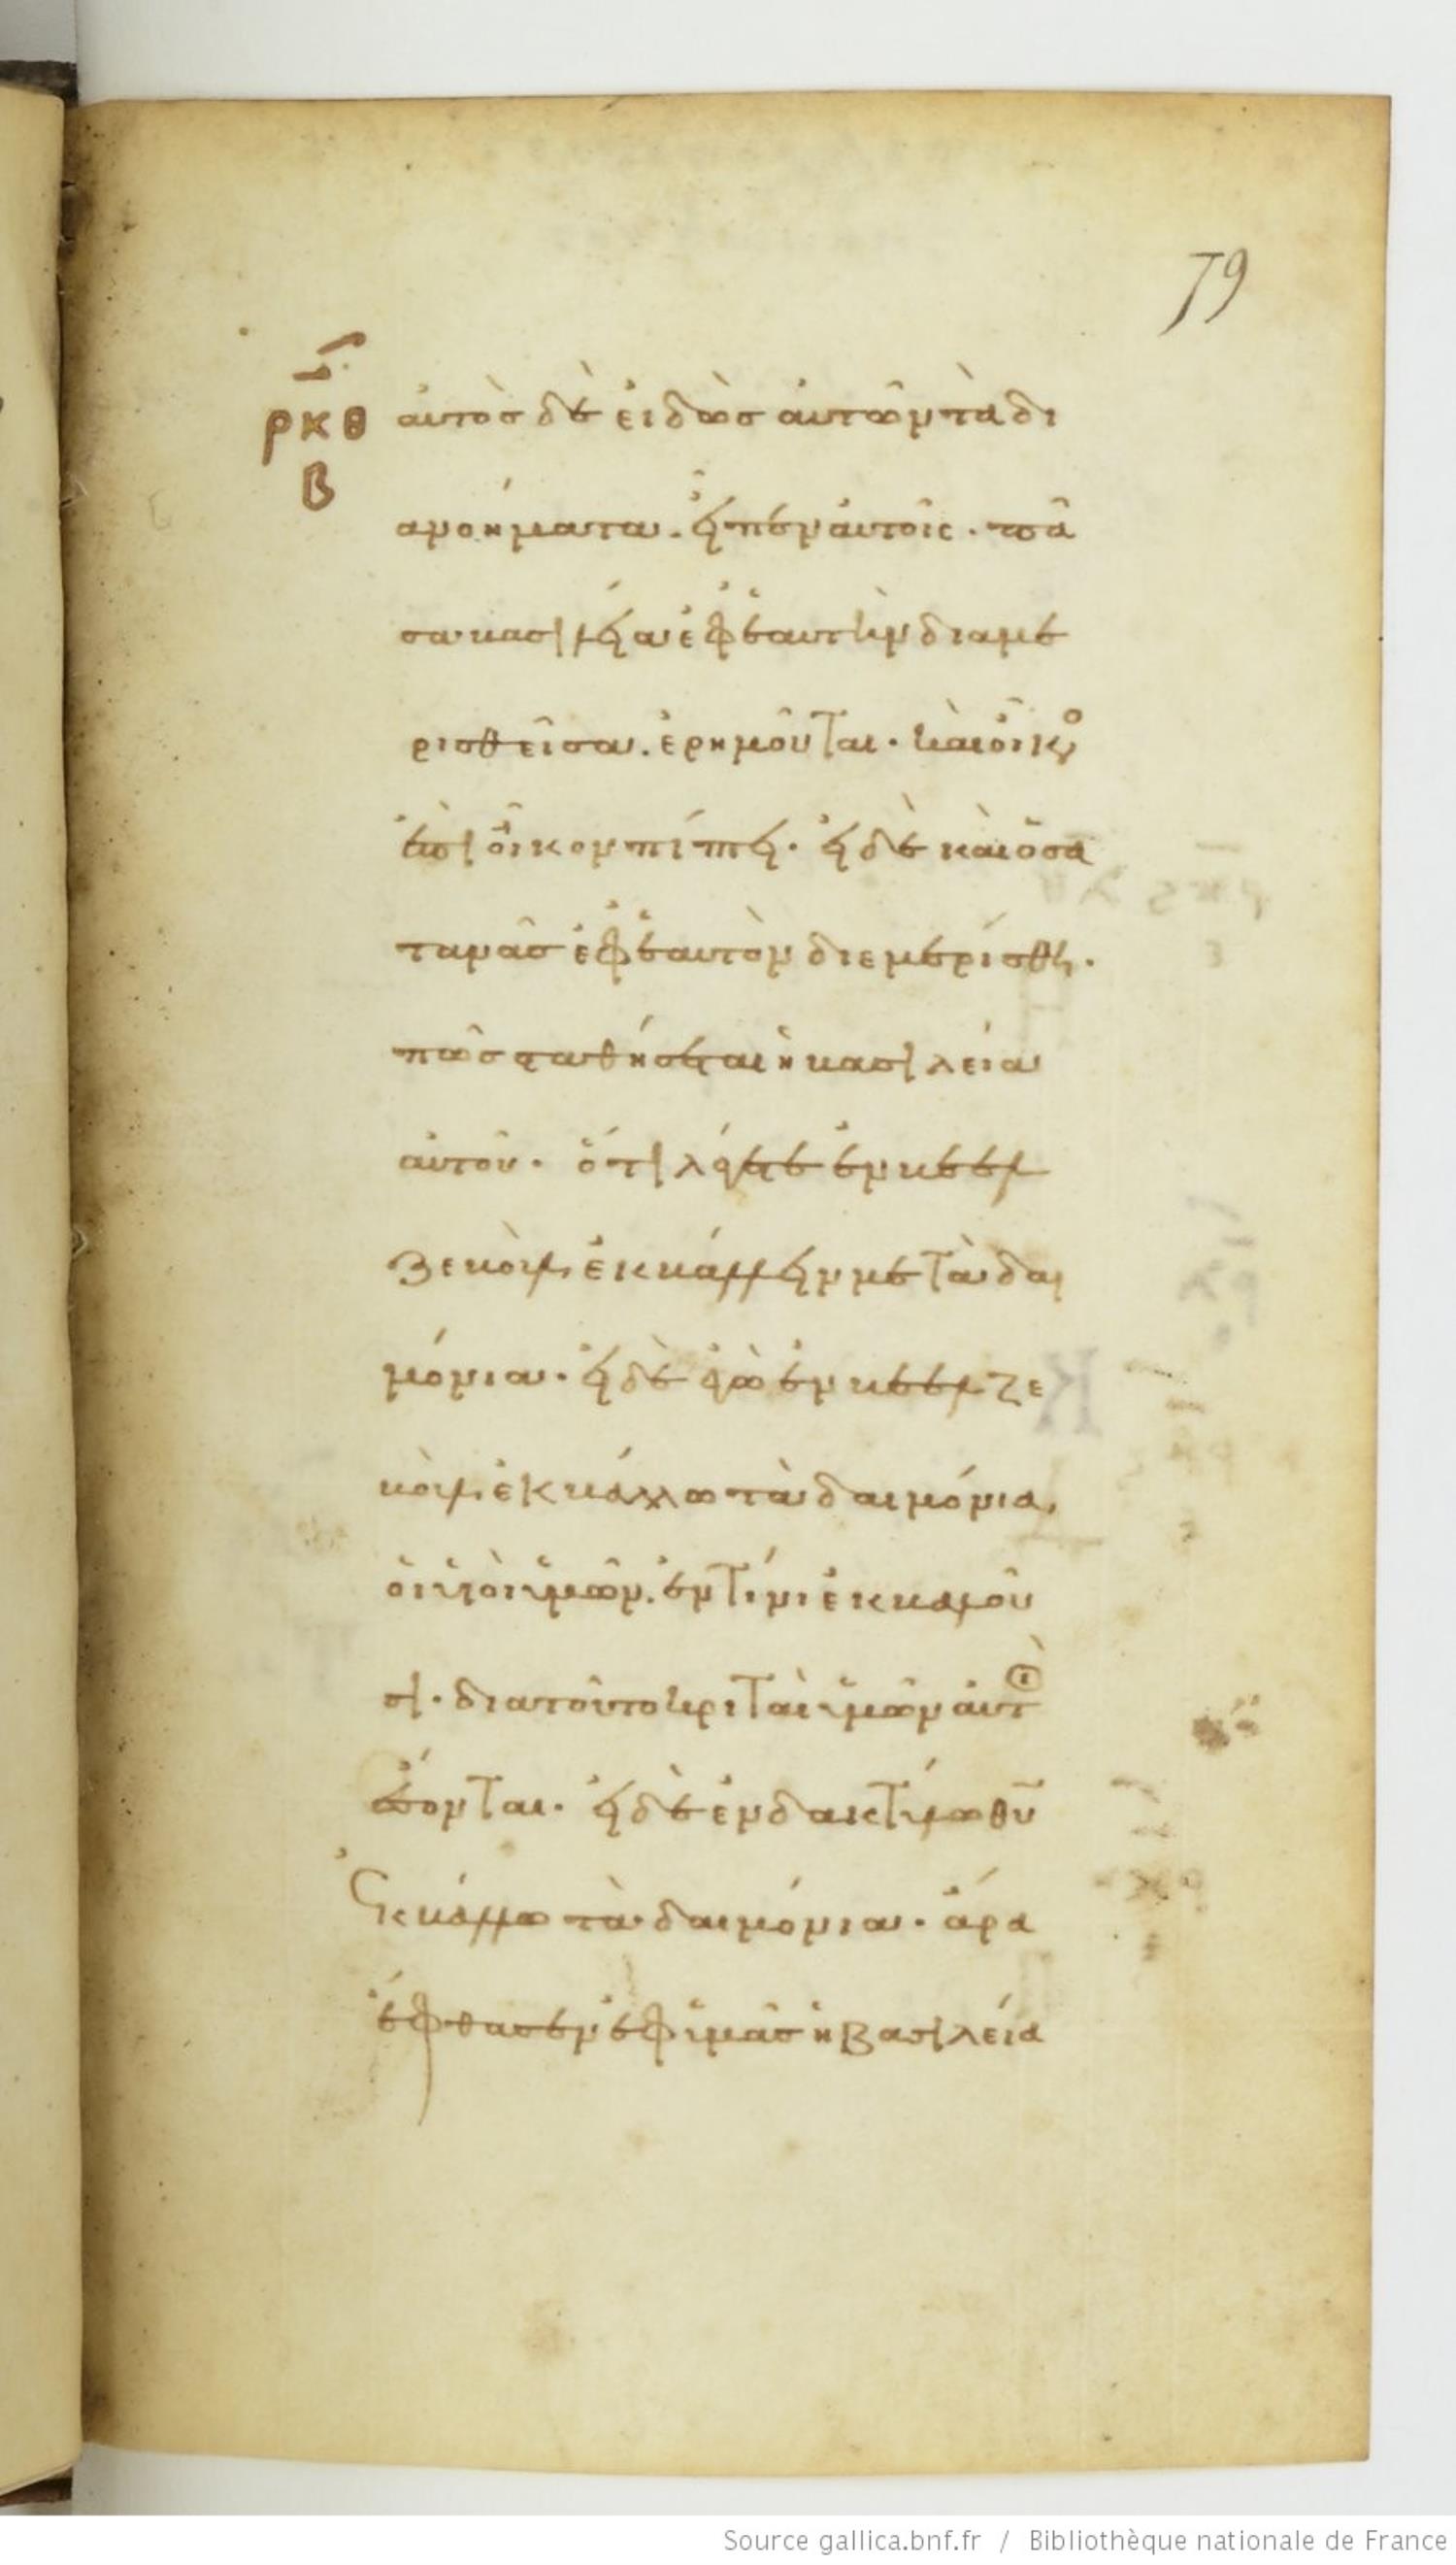 79
ρκθ
β
αὐτὸσ δὲ εἰδὼσ αὐτῶν τὰ δι
ανοήματα. εἶπεν αὐτοῖς. πᾶ
σα βασιλεία ἐφ ἑαυτὴν διαμε
ρισθεῖσα. ἐρημοῦται. καὶ οἶκο
ἐπὶ οἶκον πίπτει. εἰ δὲ καὶ ὁ σα
τανᾶσ ἐφ ἑαυτὸν διεμερίσθη.
πῶσ σταθήσεται ἡ βασιλεία
αὐτοῦ. ὅτι λέγετε ἐν βεελ
ζεβοὺλ ἐκβάλλειν με τὰ δαι
μόνια. εἰ δὲ ἐγὼ ἐν βεελζε
βοὺλ ἐκβάλλω τὰ δαιμόνια,
οἱ υἱοὶ ὑμῶν. ἐν τίνι ἐκβαλοῦ
σι. διατοῦτο κριταὶ ὑμῶν αὐτοὶ
ἔσονται. εἰ δὲ ἐν δακτύλω θυ
Ἐκβάλλω τὰ δαιμόνια. ἄρα
ἔφθασεν ἐφ ὑμᾶσ ἡ βασιλεία
Source gallica.bnf.fr / Bibliothèque nationale de France